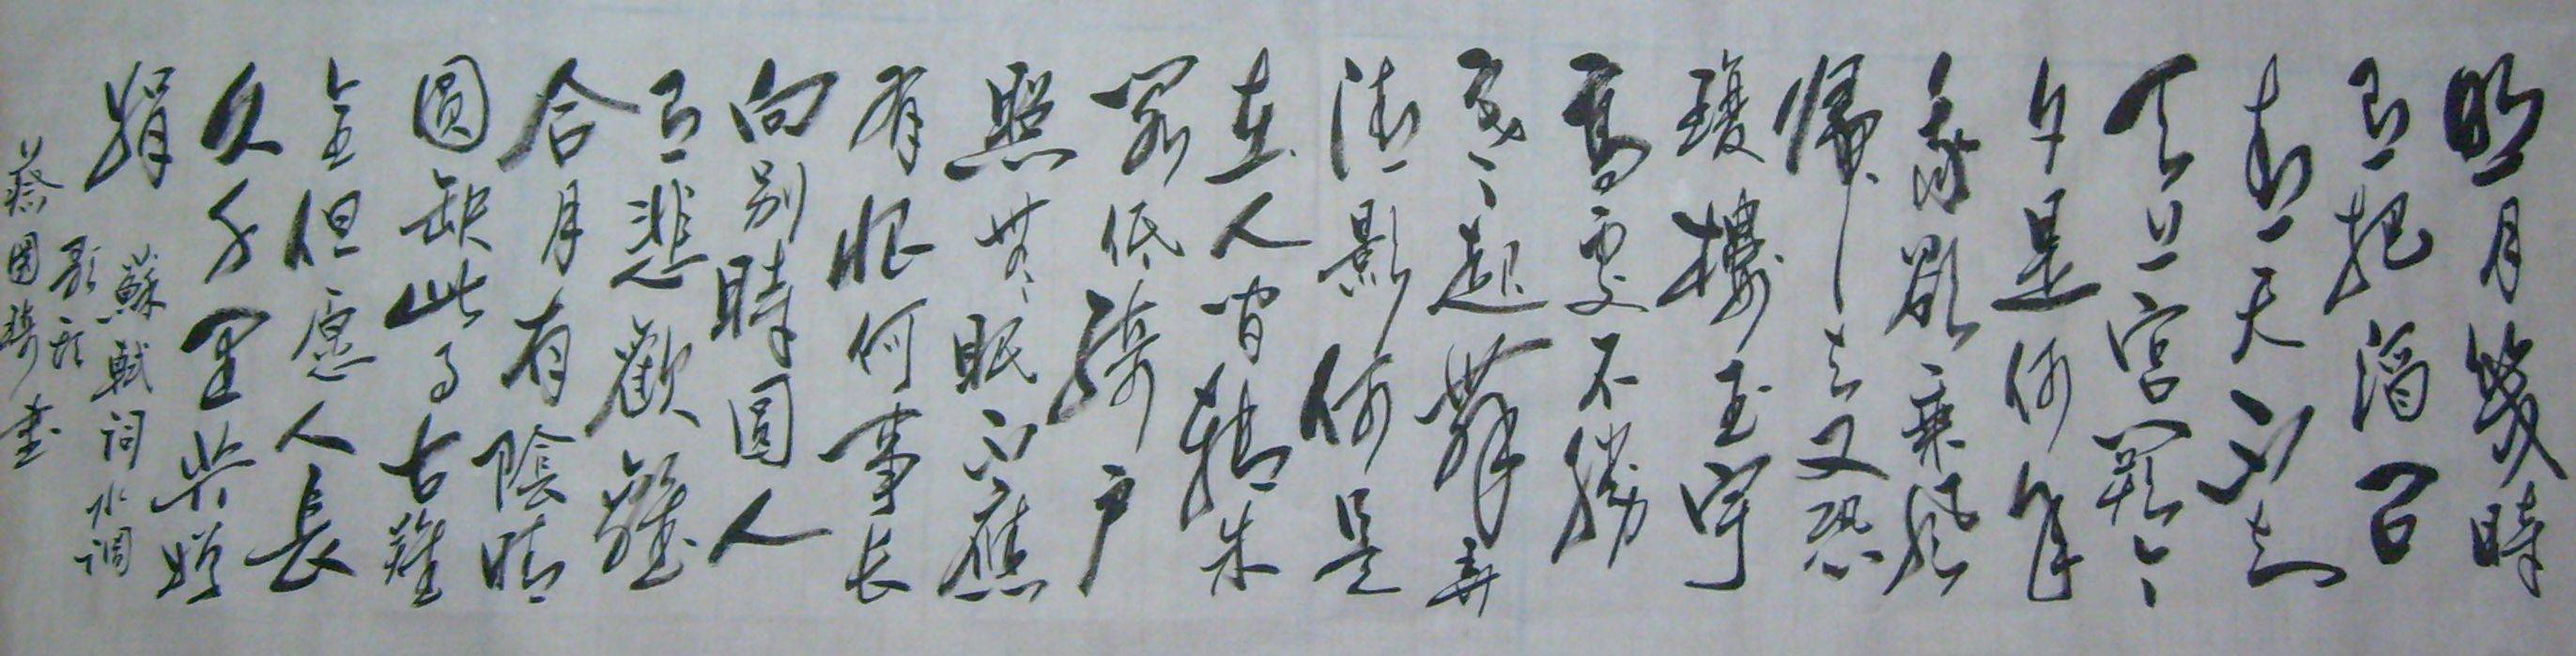 明月幾時
有把酒问
青天不知
天上宫闕今
夕是何年
我欲乘风
帰去又恐
瓊樓玉宇
高處不勝
寒起舞弄
清影何是
在人间转朱
阁低绮户
照無眠不應
有恨何事长
向别時圆人
有悲歡離
合月有陰晴
圓缺此事古難
全但愿人長
久千里共嬋
娟
蘇軾词水调
歌头
蔡國書